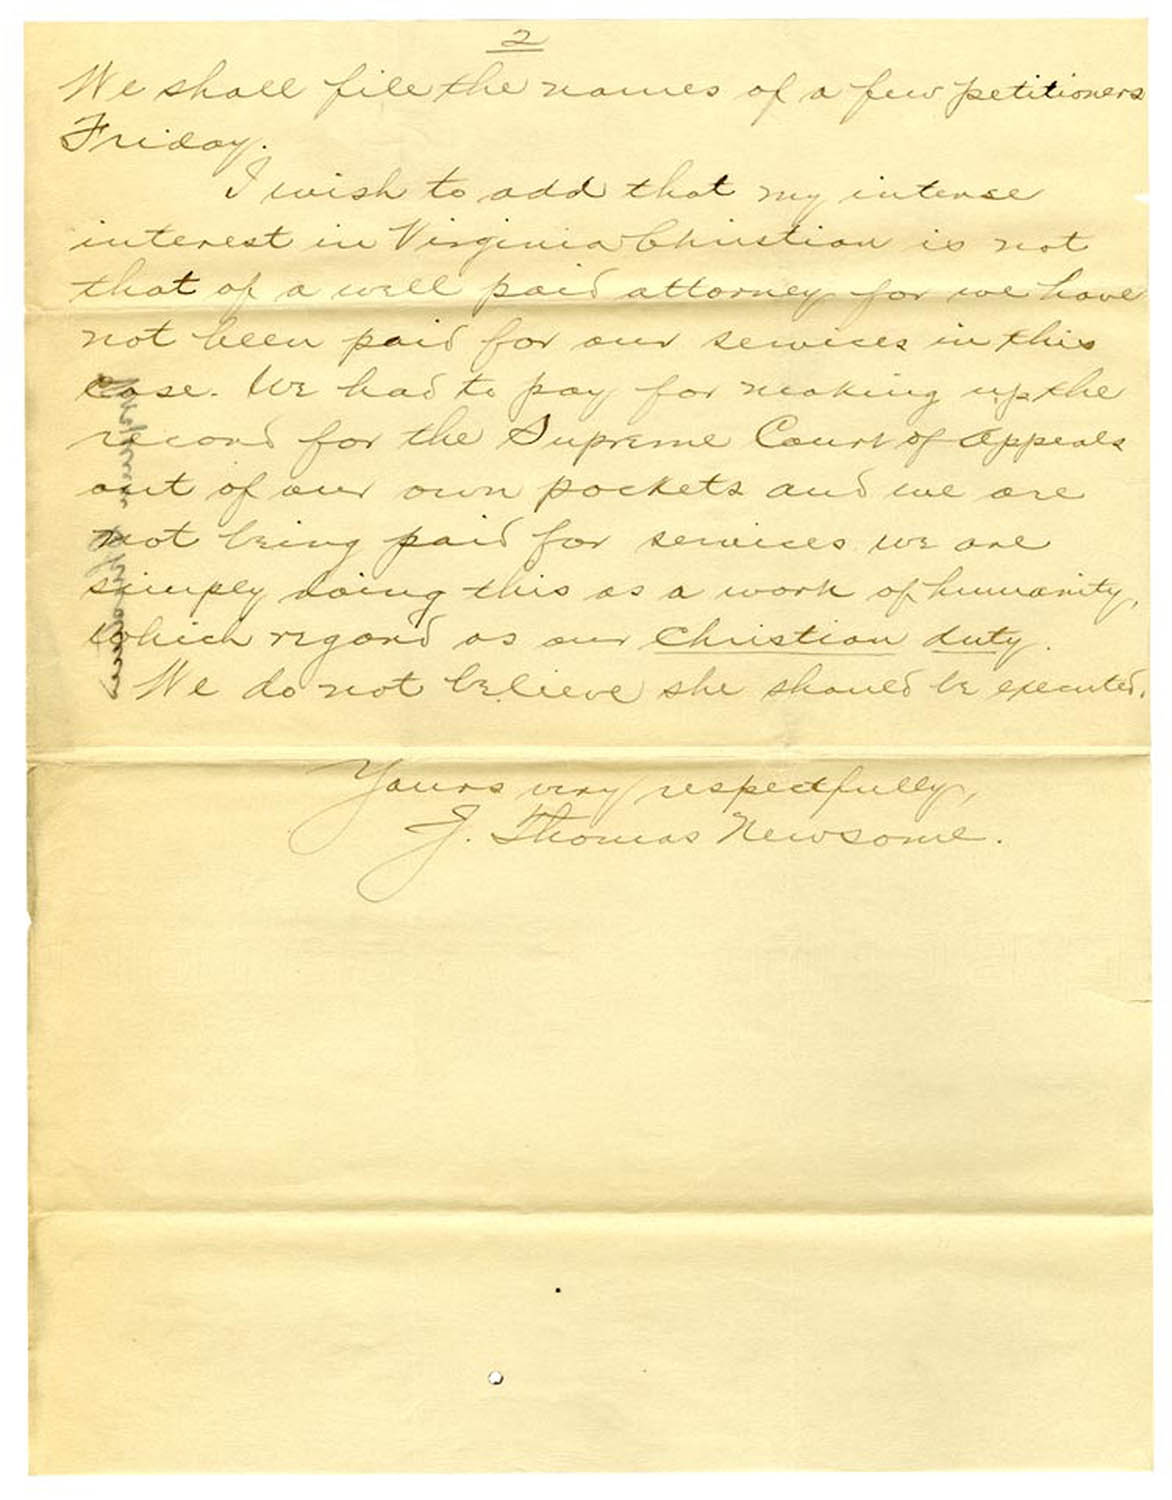 2
We shall file the names of a few petitioners
Friday.
I wish to add that my intense
interest in Virginia Christian is not
that of a well paid attorney for we have
not been paid for our services in this
case. We had to pay for making up the
record for the Supreme Court of Appeals
out of our own pockets and we are
not being paid for services we are
simply doing this as a work of humanity,
which regard as our Christian duty.
We do not believe she should be executed.
Yours very respectfully,
J. Thomas Newsome.